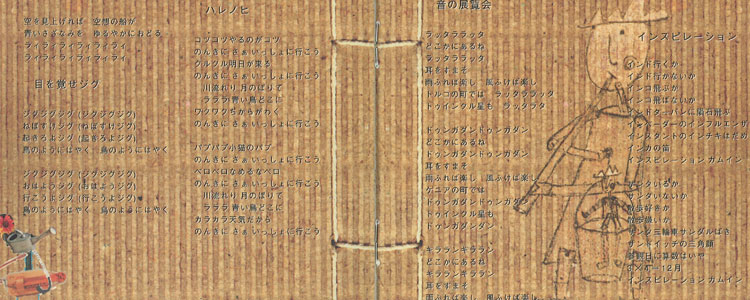 空を見上げれば 空想の船が
青いさざなみを ゆるやかにおどる
ライライライライライライ
目を覚せジグ
ジグジグジグ (ジグジグジグ)
ねぼすけジグ (ねぼすけジグ)
起きろよジグ (起きろよジグ)
鳥のようにはやく 鳥のようにはやく
ジグジグジグ (ジグジグジグ)
おはようジグ (おはようジグ)
行こうよジグ (行こうよジグ)
鳥のようにはやく 鳥のようにはやく
ハレノヒ
コツコツやるのがコツ
のんきに さぁ いっしょに行こう
クルクル明日が来る
のんきに さぁ いっしょに行こう
川流れり 月のぼりて
ラララ青い鳥どこに
ワクワクぢからがわく
のんきに さぁ いっしょに行こう
パプパプ小猫のパプ
のんきに さぁ いっしょに行こう
ペロペロなめるなペロ
のんきに さぁ いっしょに行こう
川流れり 月のぼりて
ラララ青い鳥どこに
カラカラ天気だから
のんきに さぁ いっしょに行こう
音の展覧会
ラッタラララッタ
どこかにあるね
ラッタラララッタ
耳をすまそ
雨ふれば楽し 風ふけば楽し
トルコの町では ラッタラララッタ
トゥインクル星も ラッタラララッタ
ドゥンガダンドゥンガダン
どこかにあるね
ドゥンガダンドゥンガダン
耳をすまそ
雨ふれば楽し 風ふけば楽し
ケニアの町では
ドゥンガダンドゥンガダン
トゥインクル星も
ドゥンガダンドゥンガダン
ギラランギララン
どこかにあるね
ギラランギララン
耳をすまそ
雨ふれば楽し 風ふけば楽し
インスピレーション
インド行くか
インド行かないか
インコ飛ぶか
インコ飛ばないか
インカの笛
インスピレーション カムイン
サンタいるか
サンタいないか
散歩好きか
散歩嫌いか
サンク三輪車サンダルばき
サンドイッチの三角顔
参観日に算数はいや
インスピレーション カムイン